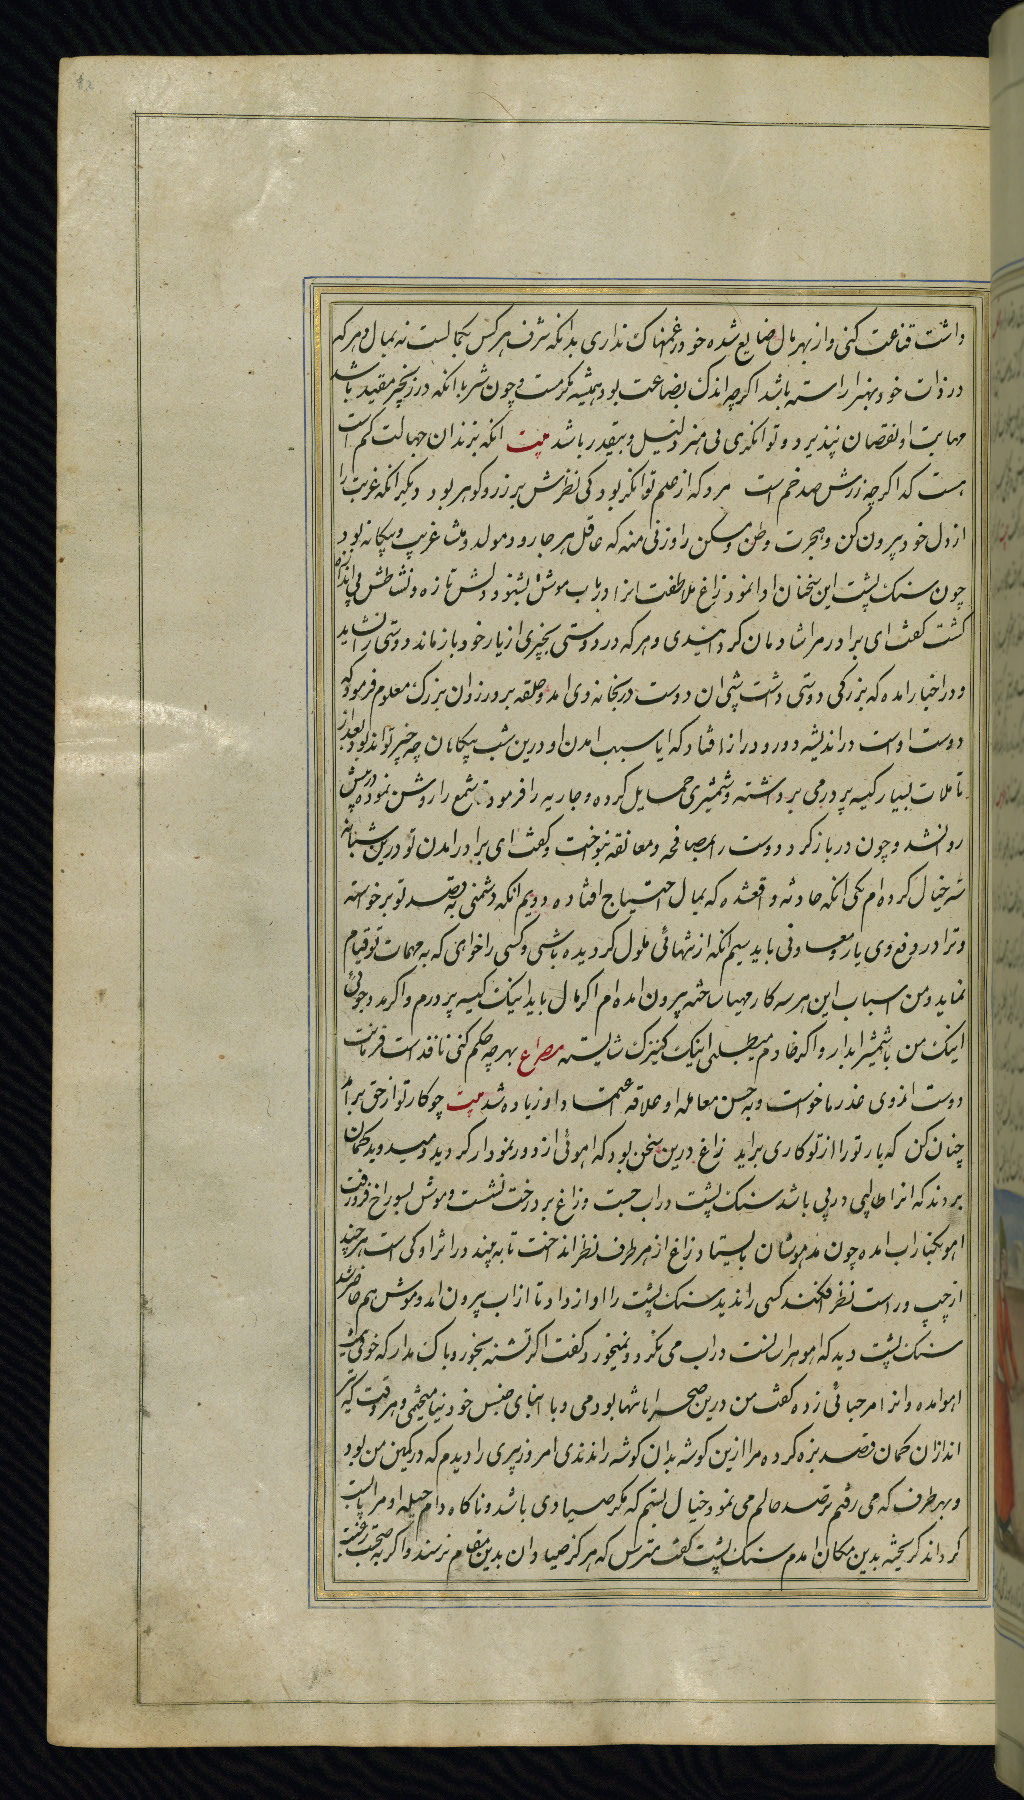 داشت قناعت کنی و از بهر مال ضایع شده خود را غمناک نداری بدانکه شرف هر کس بکمالست نه بمال و هر که
در ذات خود بهنر اراسته باشد اکرچه اندک بضاعت بود همیشه مکرمست و چون شیر با انکه در زنجیر مقید باشد
مهابت او نقصان نپذیرد و توانکری بی هنر ذلیل و بیقدر باشد بیت انکه بزندان جهالت کم است
هست کدا کرچه زرش صد خم است مرد که از علم توانکر بود کی نظرش بر زر و کوهر بود دیکر انکه غربت را
از دل خود بیرون کن و هجرت وطن و مسکن را وزنی منه که عاقل هر جا رود مولد و منشا غریب و بیکانه بود
چون سنک پشت این سخنان ادا نمود زاغ ملاطفت انرا در باب موش بشنود دلش تازه و نشاطش بی اندازه
کشت کفت ای برادر مرا شادمان کردانیدی و هر که در دوستی بخیری از یار خود باز ماند دوستی را نشاید
و در اخبار امده که بزرکی دوستی داشت شبی ان دوست در بخانه وی امد و حلقه بر در زد ان بزرک معلوم فرمود که
دوست اوست در اندیشه دور و دراز افتاد که ایا سبب امدن او درین شب بیکاهان چه چیز تواند بود بعد از
تاملات بسیار کیسه پر درمی برداشته و شمشیری حمایل کرده و جاریه را فرمود تا شمع را روشن نموده در پیش
روانشد و چون در باز کرد و دوست را بمصافحه و معانقه بنواخت و کفت ای برادر امدن تو درین شب بانه
سه خیال کرده ام یکی انکه حادثه واقعشده که بمال احتیاج افتاده دویم انکه دشمنی بقصد تو برخواسته
و ترا در دفع وی یار و معاونی باید سیم انکه از تنهائی ملول کردیده باشی و کسی را خواهی که به مهمات تو قیام
نماید و من اسباب این هر سه کار مهیا ساخته بیرون امده ام اکر مال باید اینک کیسه پر درم و اکر مدد جوئی
اینک من با شمشیر ابدار و اکر خادم میطلبی اینک کنیزک شایسته مصراع بهر چه حکم کنی نافذ است فرمانت
دوست از وی عذر ها خواست و به حسن معامله او علاقه اعتماد او زیاده شد بیت چو کار تو از حق برامد
چنان کن که یار تو را از تو کاری براید زاغ درین سخن بود که اهوئی از دور نمودار کردید و میدوید کمان
بردند که انرا طالبی در پی باشد سنک پشت در اب جست و زاغ بر درخت نشست و موش بسوراخ فرورفت
اهو بکنار اب امده چون مدهوشان بایستاد زاغ از هر طرف نظر انداخت تا به بیند در اثر او کی است هر چند
از چپ و راست نظر افکند کسی را ندید سنک پشت را اواز داد تا از اب بیرون امد و موش هم حاضر شد
سنک پشت دید که اهو هراسانست در اب می نکرد و نمیخورد کفت اکر تشنه بخور و باک مدار که خوفی نیست
اهو امده و انرا مرحبائی زده کفت من درین صحرا تنها بودمی و با ابنای جنس خود نیامیختمی و هر وقت که تیر
اندازان کمان قصد بزه کرده مرا ازین کوشه بدان کوشه راندندی امروز پیری را دیدم که در کمین من بود
و بهر طرف که می رفتم ترصد حالم می نمود خیال بستم که مکر صیادی باشد و ناکاه دام حیله او مرا پابست
کرداند کریخته بدین مکان امدم سنک پشت کفت مترس که هرکز صیادان بدین مقام نرسند و اکر به صحبت رغبت